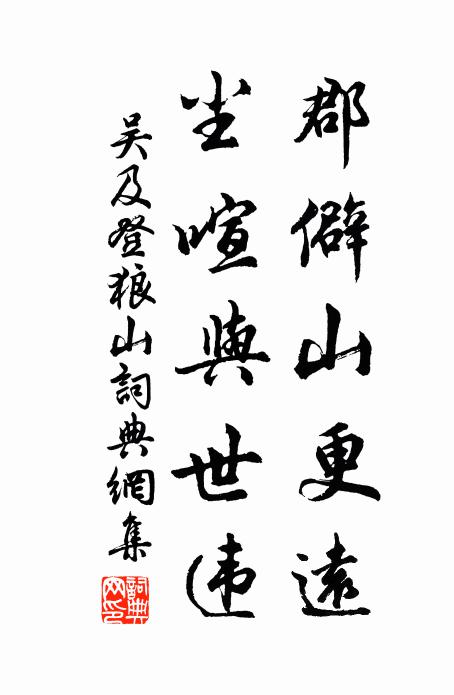 郡僻山更遠
尘喧與世违
吴及登狼山詞典網集
詞典網印